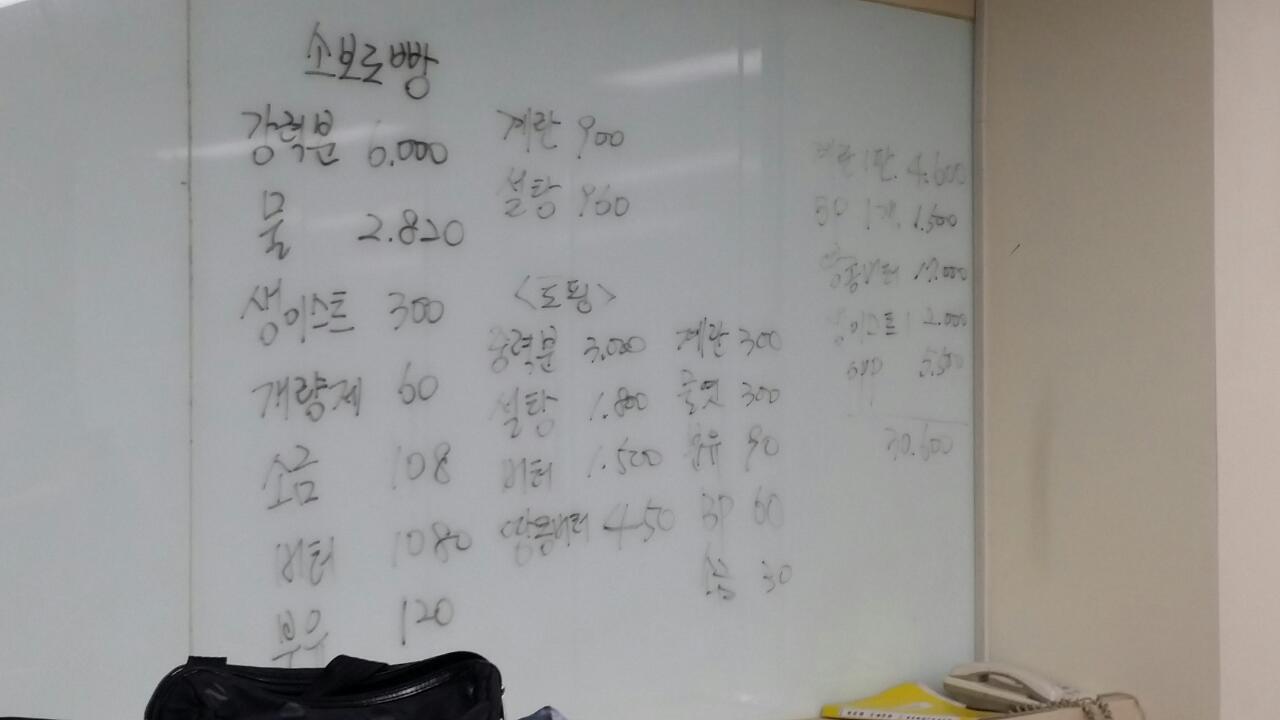 소보로빵
강력분 6.000
물 2.820
생이스트 300
개량제 60
소금 108
버터 1080
분유 120
계란 900
설탕 960
<토핑>
중력분 3.000
설탕 1.800
버터 1.500
땅콩버터 450
계란 300
물엿 300
분유 90
BP 60
소금 30
계란 1판. 4.600
1개. 1.500
땅콩버터
생이스트 2.000
5.500
30.600